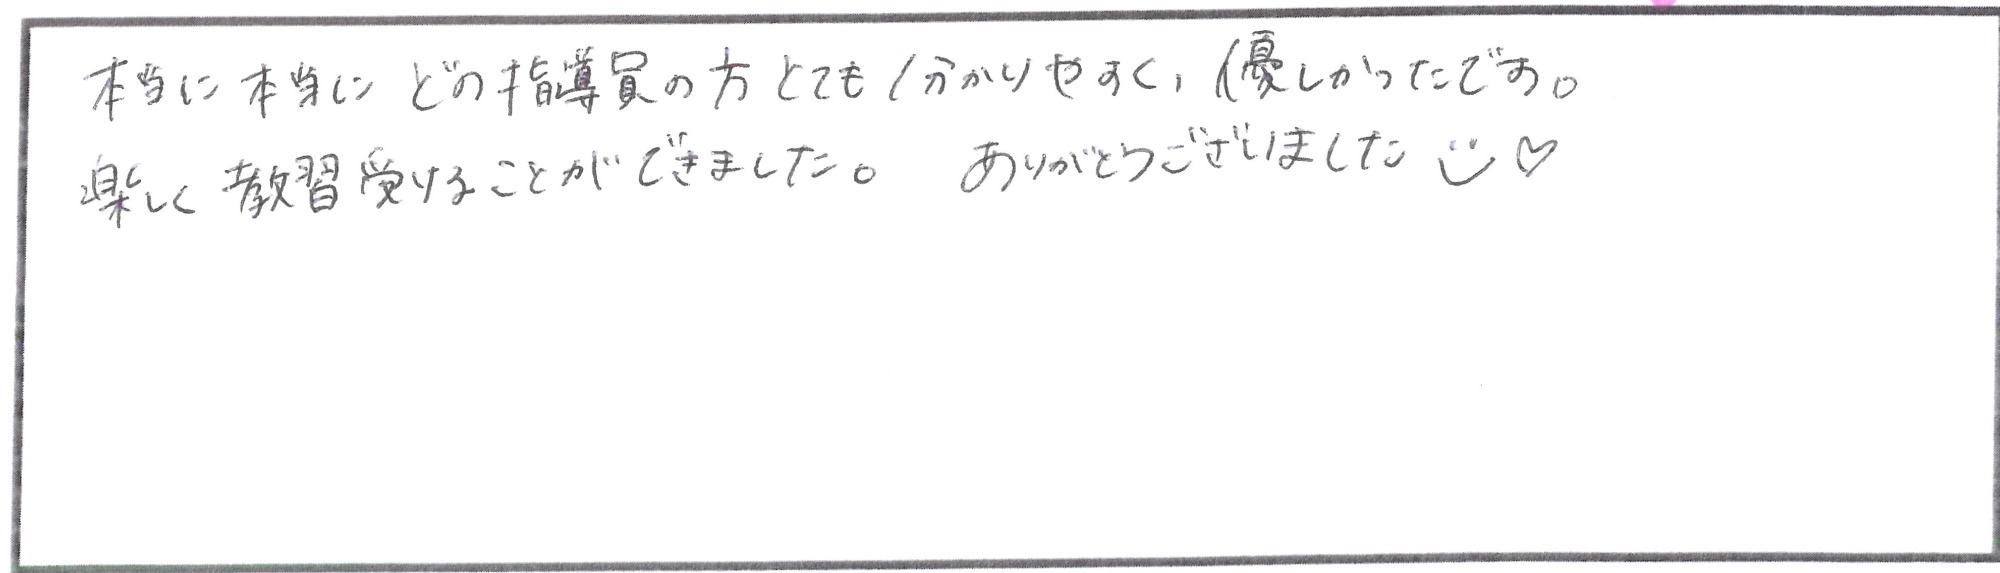 本当に本当に どの指導員の方とても分かりやすく、優しかったです。
楽しく教習受けることができました。 ありがとうございました☺♡